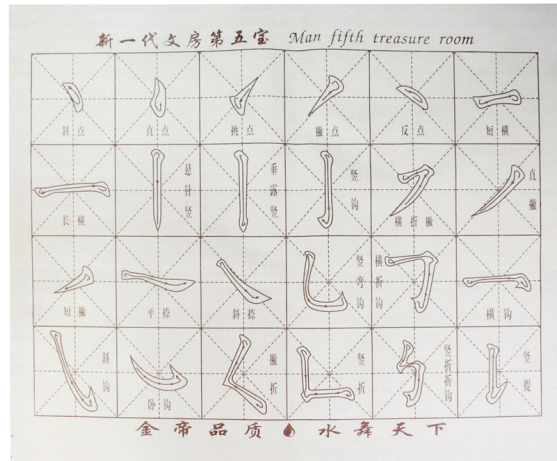 新一代文房第五宝 Man fifth treasure room
斜点 直点 挑点 撇点 反点 短横
长横 悬针竖 垂露竖 竖钩 横折撇 直撇
短撇 平捺 斜捺 竖弯钩 横折钩 横钩
斜钩 卧钩 撇折 竖折 竖折折钩 竖提
金帝品质 水舞天下